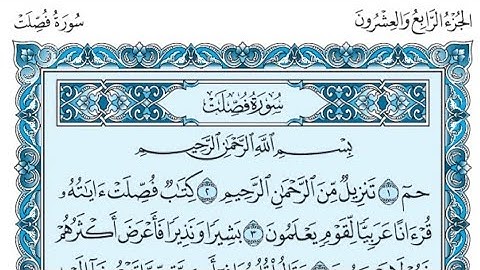 الجُزْءُ الرَّابِعُ وَالعِشْرُونَ
سُورَةُ فُصِّلَتْ
سُورَةُ فُصِّلَتْ
بِسْمِ ٱللَّهِ ٱلرَّحْمَٰنِ ٱلرَّحِيمِ
حمٓ ١ تَنزِيلٌ مِّنَ ٱلرَّحْمَٰنِ ٱلرَّحِيمِ ٢ كِتَٰبٌ فُصِّلَتْ ءَايَٰتُهُۥ
قُرْءَانًا عَرَبِيًّا لِّقَوْمٍ يَعْلَمُونَ ٣ بَشِيرًا وَنَذِيرًا فَأَعْرَضَ أَكْثَرُهُمْ